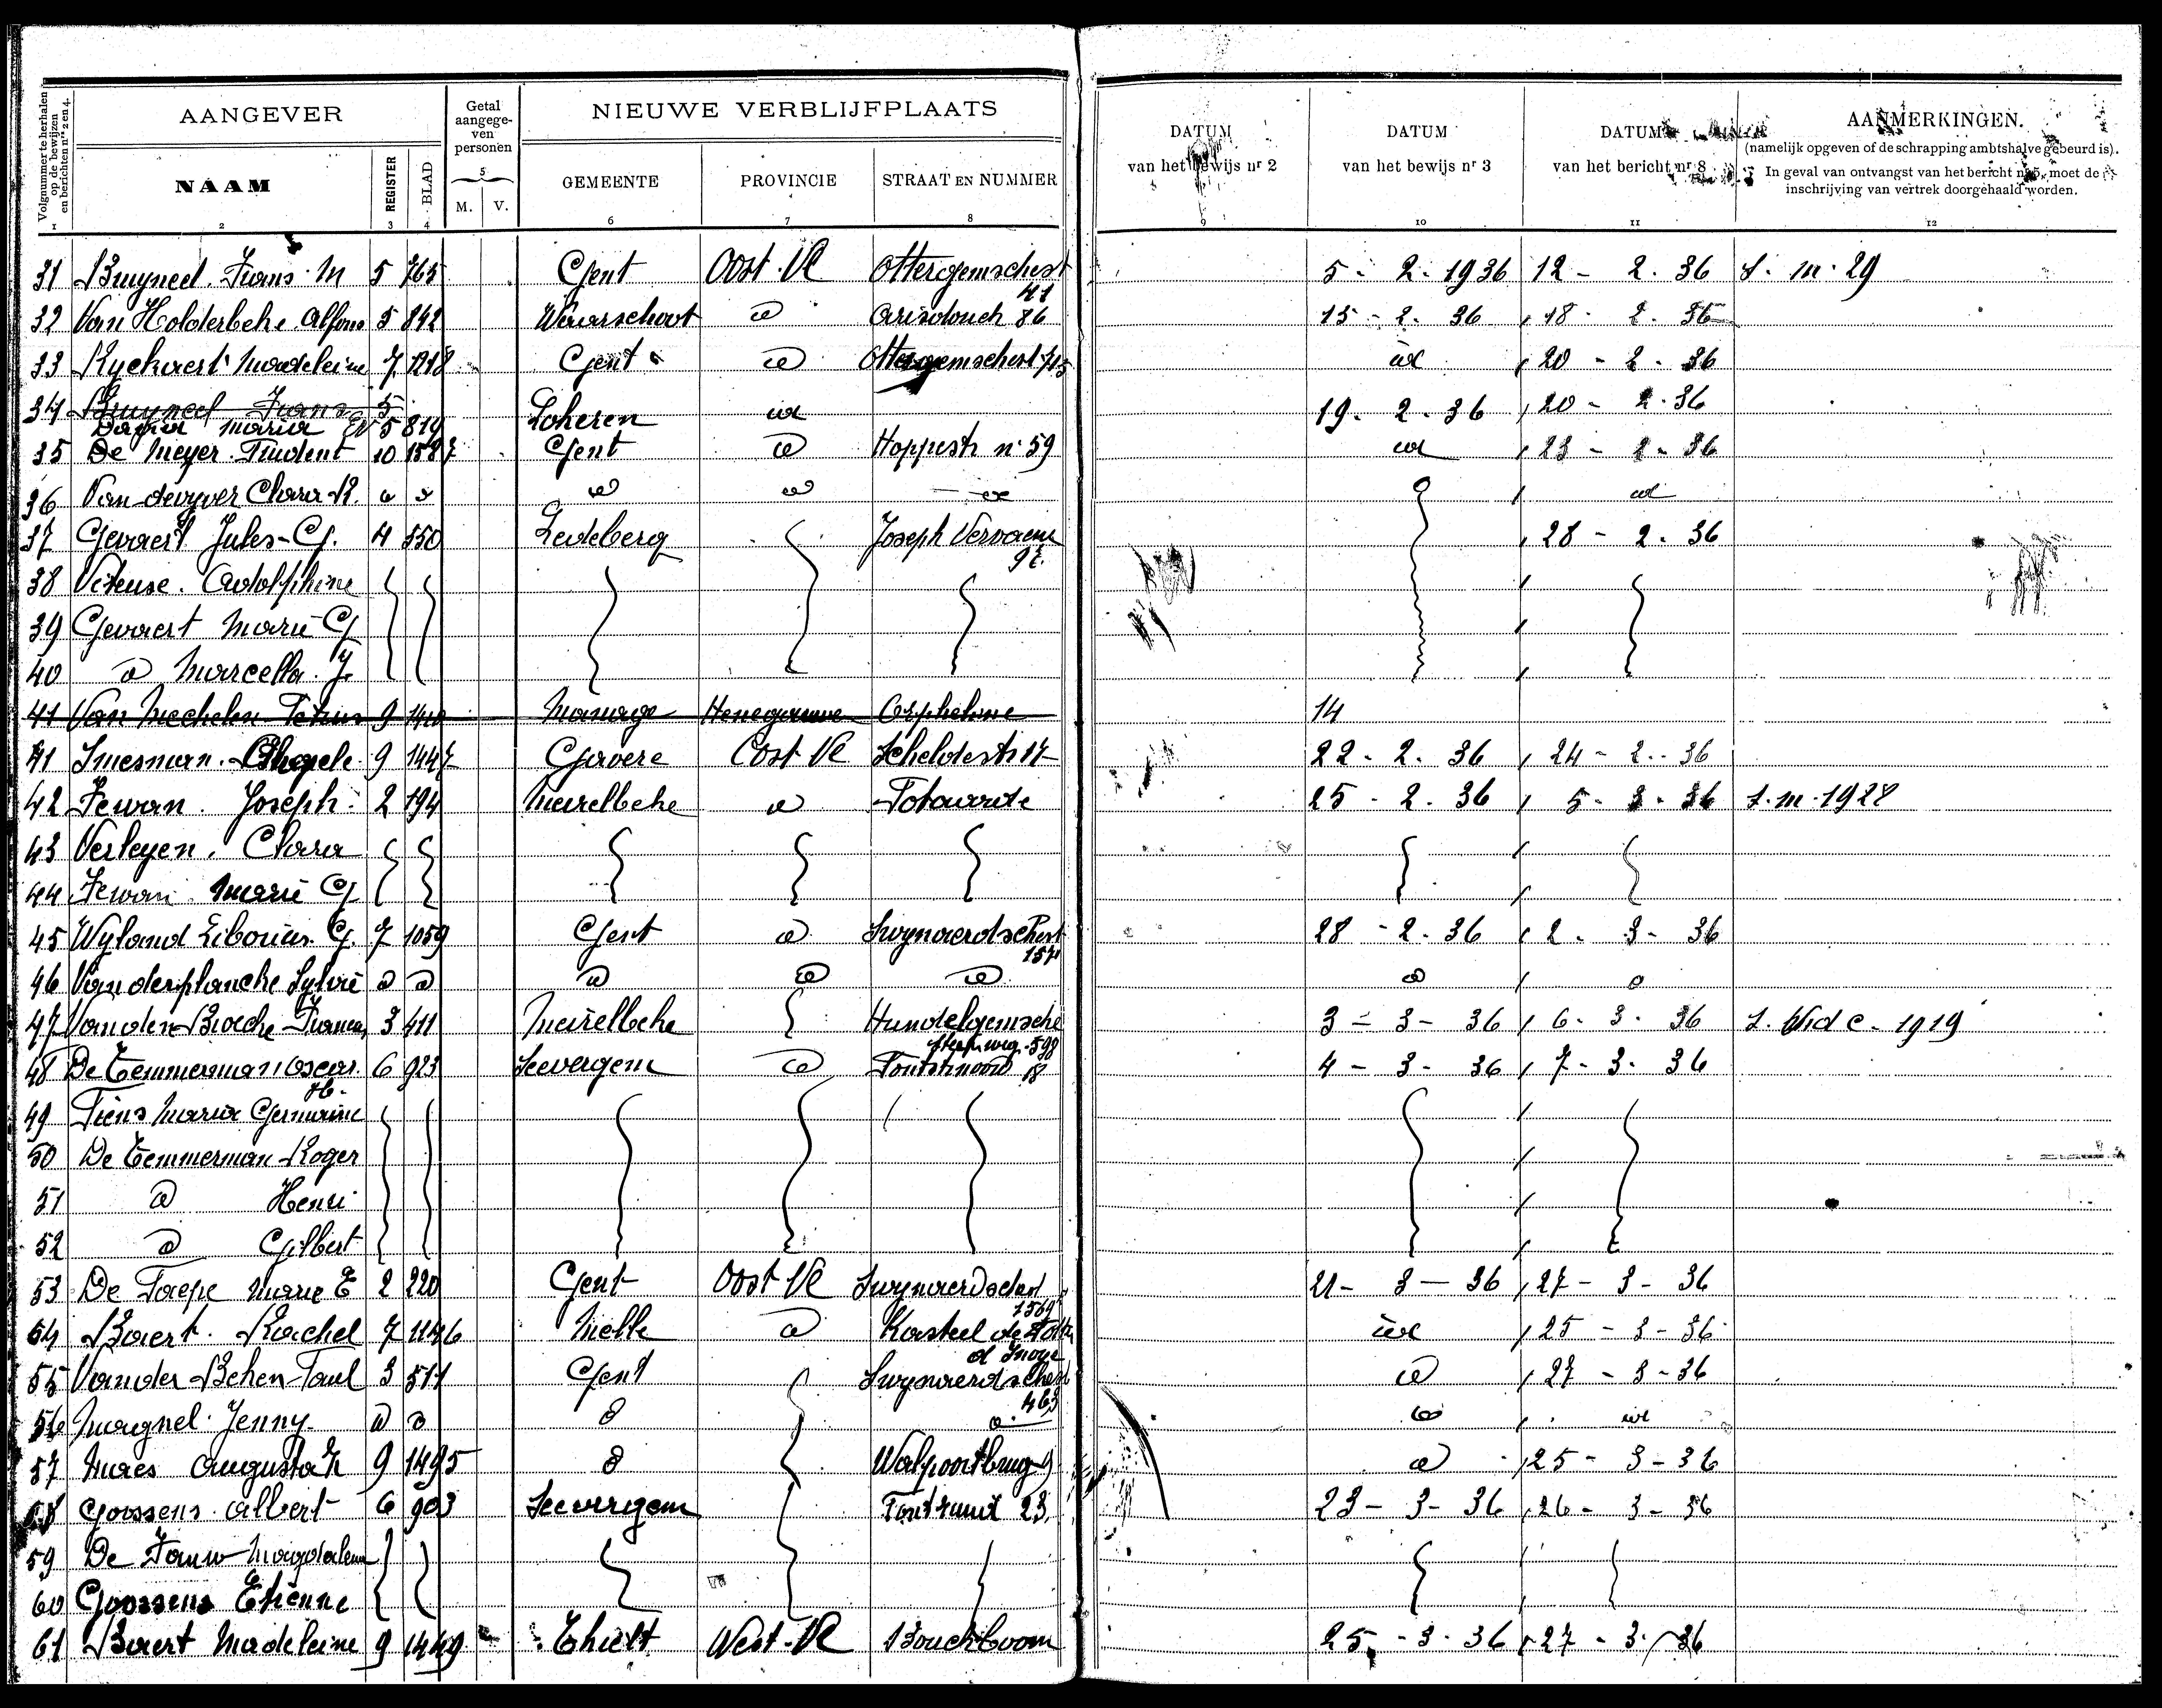 Volgnummer te herhalen op de bewijzen en berichten nrs 2 en 4.
AANGEVER
Getal aangege-ven personen
NIEUWE VERBLIJFPLAATS
DATUM van het bewijs nr 2
DATUM van het bewijs nr 3
DATUM van het bericht nr 8
AANMERKINGEN.
(namelijk opgeven of de schrapping ambtshalve gebeurd is).
In geval van ontvangst van het bericht nr 5, moet de inschrijving van vertrek doorgehaald worden.
NAAM REGISTER BLAD 5 M. V. GEMEENTE PROVINCIE STRAAT EN NUMMER
1 2 3 4 6 7 8 9 10 11 12
31 Bruyneel Frans M 5 765 Gent Oost-Vl Ottergemschest 41 5-2-1936 12-2-36 S. m. 29
32 Van Holderbeke Alfons 5 842 Waarschoot id 86 15-2-36 18-2-36
33 Ryckaert Madeleine 7 1218 Gent id Ottergemschest 713 id 20-2-36
34 Bruyneel Frans 5
Maria 5 819 Lokeren id 19-2-36 20-2-36
35 De Meyer Prudent 10 1587 Gent id Hoppestr n° 59 id 23-2-36
36 Van devyver Clara R. id id id id id id
37 Gevaert Jules-G. 4 550 Ledeberg Joseph Vervaene 92 28-2-36
38 Adolphine
39 Gevaert Marie G
40 id Marcella J.
41 Van Mechelen Petrus 9 1440 Manage Henegouwe Orpheline 14
41 Smesman 9 1447 Gavere Oost-Vl Scheldestr 17 22-2-36 24-2-36
42 Joseph 2 194 Meirelbeke id 25-2-36 5-3-36 S. m. 1928
43 Verleyen Clara
44 Marie G
45 Wyland Liborius G. 7 1059 Gent id Swynaerdschest 157 28-2-36 2-3-36
46 Van derplancke Sylvie id id id id id id id
47 Van den Broecke Francis 3 411 Meirelbeke Hundelgemsche steenweg 598 3-3-36 6-3-36 1919
48 De Temmerman Oscar H. 6 923 Seevergem id 18 4-3-36 7-3-36
49 Piens Maria Germaine
50 De Temmerman Roger
51 id Henri
52 id Gilbert
53 De Paepe Marie E 2 220 Gent Oost-Vl Swynaerdschest 21-3-36 27-3-36
54 Baert Rachel 7 1146 Melle id Kasteel de id 25-3-36
55 Van der Beken Paul 3 511 Gent Swynaerdschest 463 id 27-3-36
56 Magnel Jenny id id id id id id
57 Maes Augusta 9 1495 id Walpoortbrug 9 id 25-3-36
58 Goossens Albert 6 903 Seevergem 23 23-3-36 26-3-36
59 De Pauw Magdalena
60 Goossens Etienne
61 Baert Madeleine 9 1449 Thielt West-Vl Bouckboom 25-3-36 27-3-36